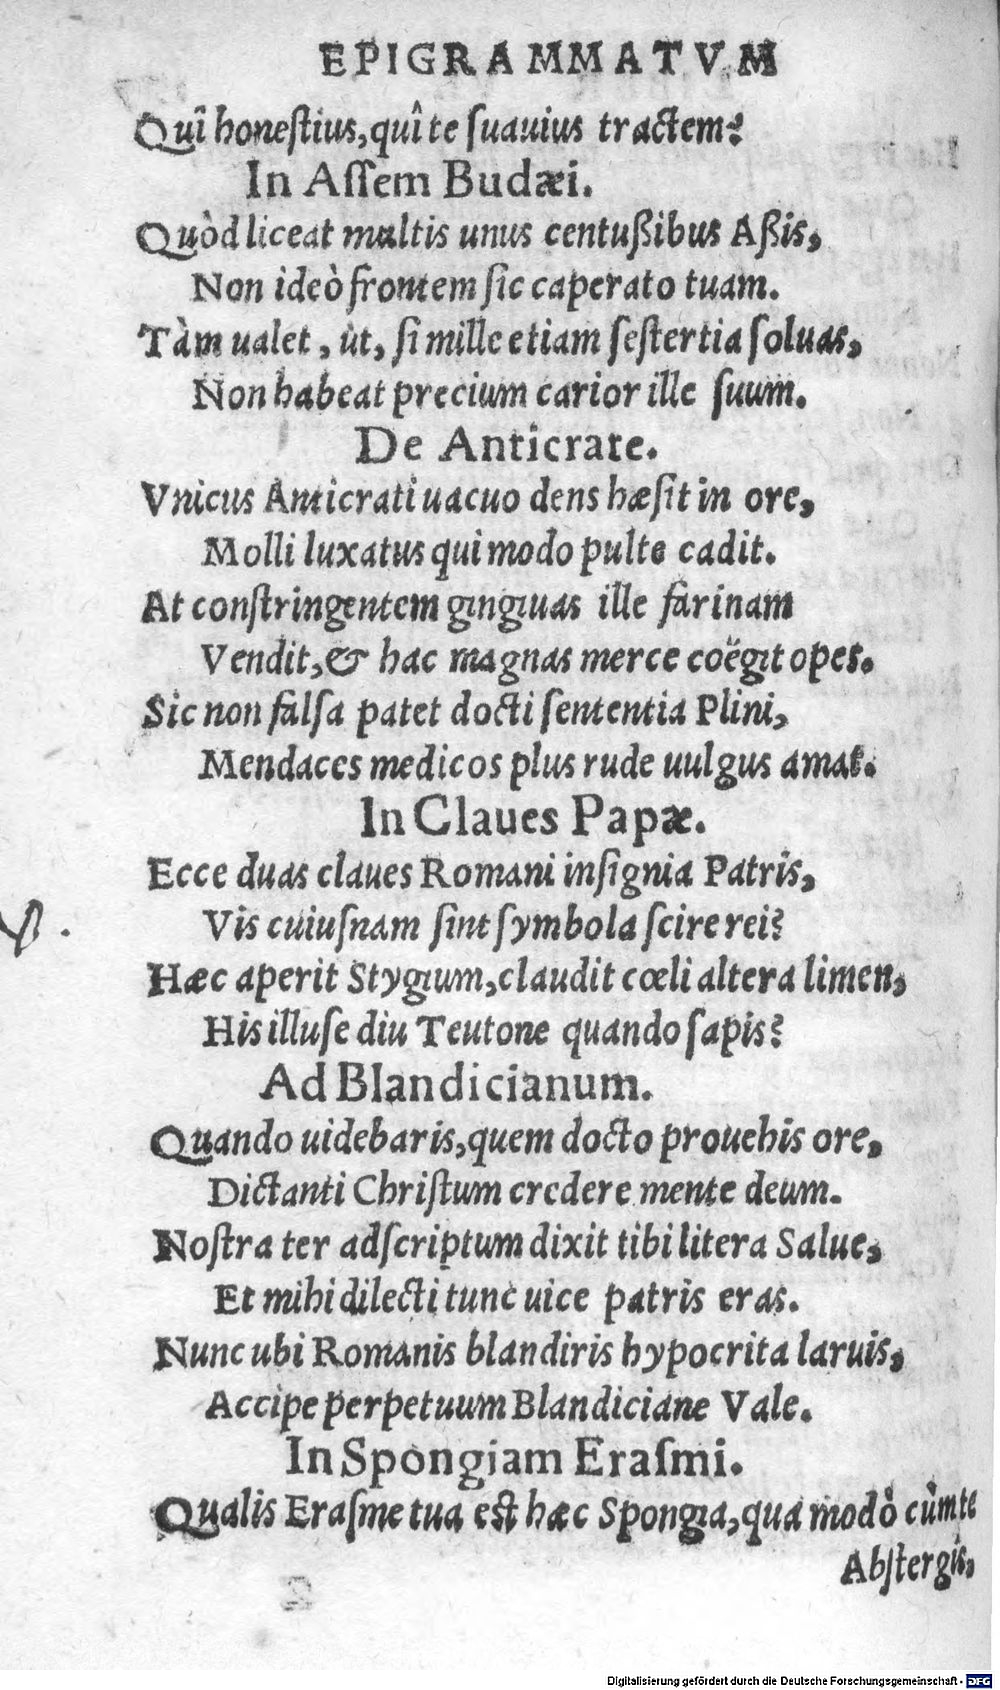 EPIGRAMMATVM
Quî honeſtius, quî te ſuauius tractem?
In Aſſem Budæi.
Quòd liceat multis unus centußibus Aßis,
Non ideò frontem ſic caperato tuam.
Tàm ualet, ùt, ſi mille etiam ſeſtertia ſoluas,
Non habeat precium carior ille ſuum.
De Anticrate.
Vnicus Anticrati uacuo dens hæſit in ore,
Molli luxatus qui modo pulte cadit.
At conſtringentem gingiuas ille farinam
Vendit, & hac magnas merce coëgit opes.
Sic non falſa patet docti ſententia Plini,
Mendaces medicos plus rude uulgus amat.
In Claues Papæ.
Ecce duas claues Romani inſignia Patris,
Vis cuiuſnam ſint ſymbola ſcire rei?
Hæc aperit Stygium, claudit cœli altera limen,
His illuſe diu Teutone quando ſapis?
Ad Blandicianum.
Quando uidebaris, quem docto prouehis ore,
Dictanti Chriſtum credere mente deum.
Noſtra ter adſcriptum dixit tibi litera Salue,
Et mihi dilecti tunc uice patris eras.
Nunc ubi Romanis blandiris hypocrita laruis,
Accipe perpetuum Blandiciane Vale.
In Spongiam Eraſmi.
Qualis Eraſme tua eſt hæc Spongia, qua modò cûm te
Abſtergis,
Digitalisierung gefördert durch die Deutsche Forschungsgemeinschaft - DFG